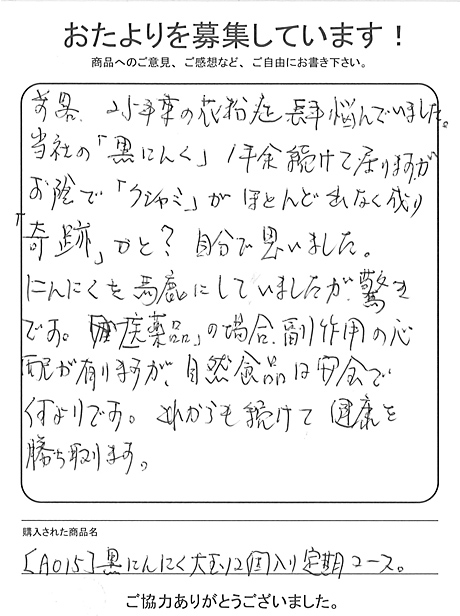 おたよりを募集しています！
商品へのご意見、ご感想など、ご自由にお書き下さい。
の花粉症 長年悩んでいました。
当社の「黒にんにく」1年余続けて居りますが
お陰で「クシャミ」がほとんど出なく成り
「奇跡」かと？自分で思いました。
にんにくを馬鹿にしていましたが、驚き
です。「医薬品」の場合、副作用の心
配が有りますが、自然食品は安全で
何よりです。これからも続けて健康を
勝ち取ります。
購入された商品名
[A015]黒にんにく大玉12個入り定期コース。
ご協力ありがとうございました。